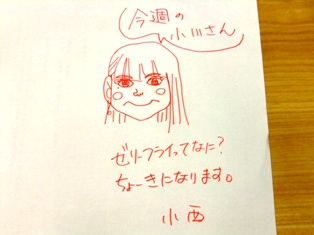 今週の
小川さん
ゼリーフライってなに?
ちょーきになります。
小西